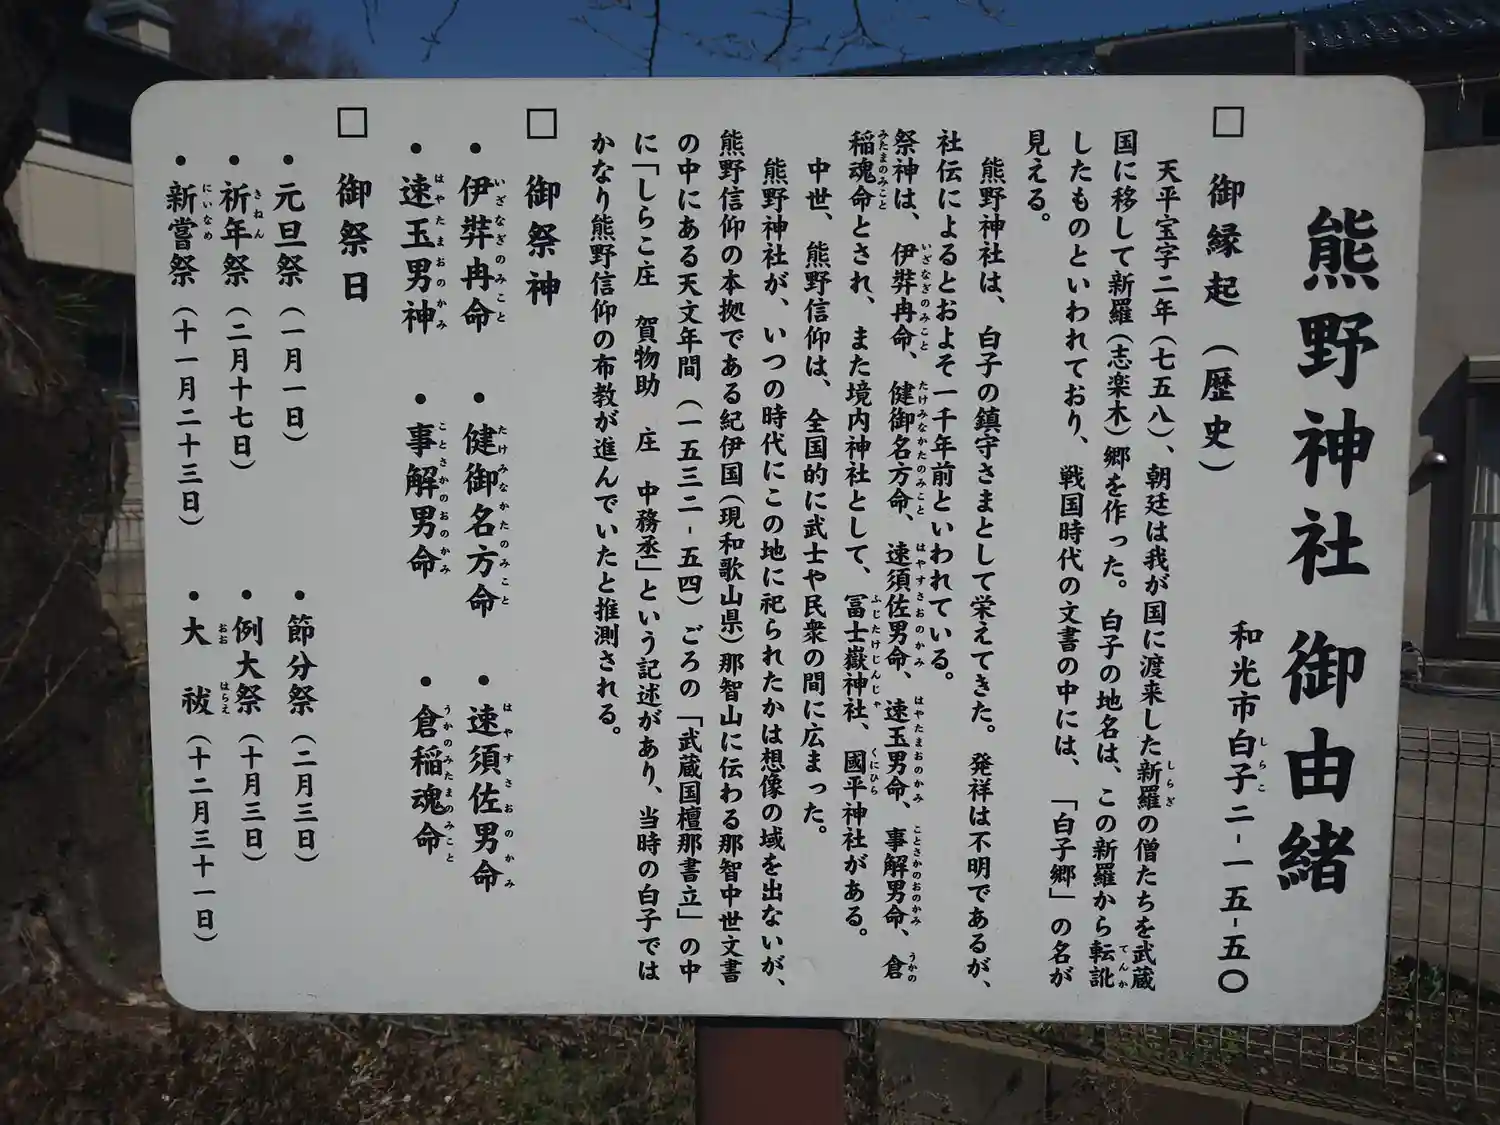 熊野神社 御由緒
和光市白子二-一五-五〇
□ 御縁起（歴史）
天平宝字二年（七五八）、朝廷は我が国に渡来した新羅の僧たちを武蔵
国に移して新羅（志楽木）郷を作った。白子の地名は、この新羅から転訛
したものといわれており、戦国時代の文書の中には、「白子郷」の名が
見える。
熊野神社は、白子の鎮守さまとして栄えてきた。発祥は不明であるが、
社伝によるとおよそ一千年前といわれている。
祭神は、伊弉冉命、健御名方命、速須佐男命、速玉男命、事解男命、倉
稲魂命とされ、また境内神社として、冨士嶽神社、國平神社がある。
中世、熊野信仰は、全国的に武士や民衆の間に広まった。
熊野神社が、いつの時代にこの地に祀られたかは想像の域を出ないが、
熊野信仰の本拠である紀伊国（現和歌山県）那智山に伝わる那智中世文書
の中にある天文年間（一五三二-五四）ごろの「武蔵国檀那書立」の中
に「しらこ庄 賀物助 庄 中務丞」という記述があり、当時の白子では
かなり熊野信仰の布教が進んでいたと推測される。
□ 御祭神
・伊弉冉命 ・健御名方命 ・速須佐男命
・速玉男神 ・事解男命 ・倉稲魂命
□ 御祭日
・元旦祭（一月一日） ・節分祭（二月三日）
・祈年祭（二月十七日） ・例大祭（十月三日）
・新嘗祭（十一月二十三日） ・大祓（十二月三十一日）